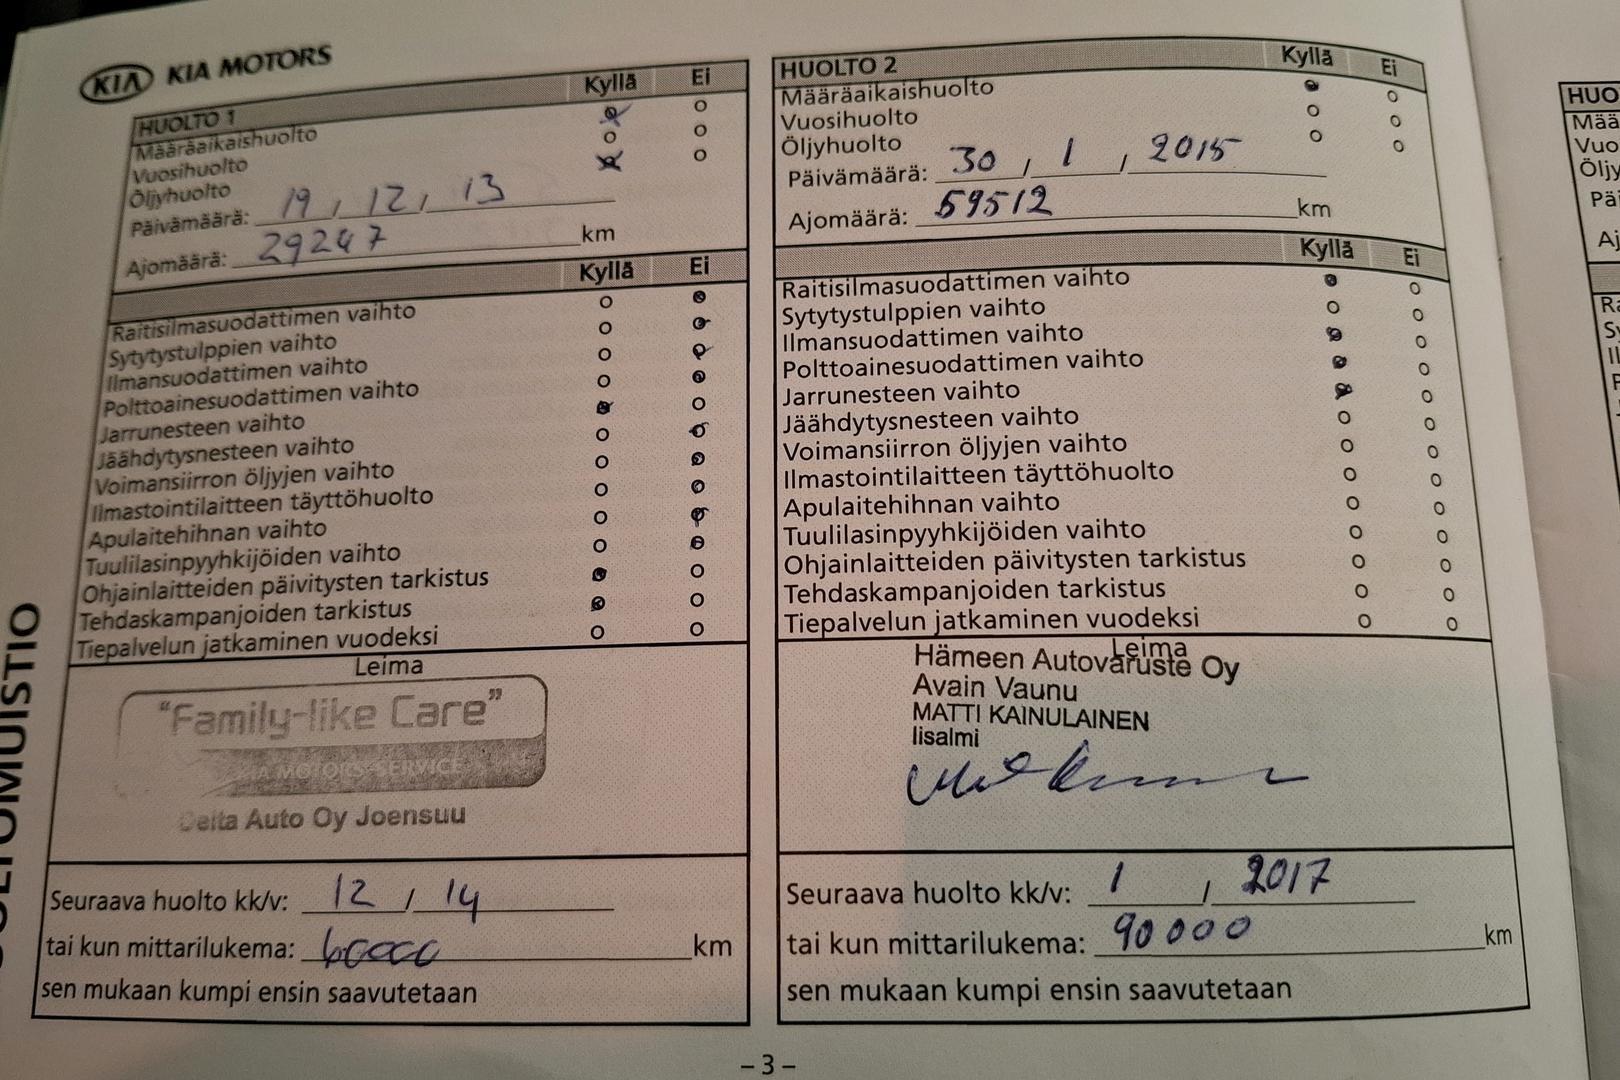 KIA KIA MOTORS
HUOLTO 1 Kyllä Ei
Määräaikaishuolto
Vuosihuolto
Öljyhuolto
Päivämäärä: 19 / 12 / 13
Ajomäärä: 29247 km
Kyllä Ei
Raitisilmasuodattimen vaihto
Sytytystulppien vaihto
Ilmansuodattimen vaihto
Polttoainesuodattimen vaihto
Jarrunesteen vaihto
Jäähdytysnesteen vaihto
Voimansiirron öljyjen vaihto
Ilmastointilaitteen täyttöhuolto
Apulaitehihnan vaihto
Tuulilasinpyyhkijöiden vaihto
Ohjainlaitteiden päivitysten tarkistus
Tehdaskampanjoiden tarkistus
Tiepalvelun jatkaminen vuodeksi
Leima
"Family-like Care"
KIA MOTORS SERVICE
Delta Auto Oy Joensuu
Seuraava huolto kk/v: 12 / 14
tai kun mittarilukema: 60000 km
sen mukaan kumpi ensin saavutetaan
HUOLTO 2 Kyllä Ei
Määräaikaishuolto
Vuosihuolto
Öljyhuolto
Päivämäärä: 30 / 1 / 2015
Ajomäärä: 59512 km
Kyllä Ei
Raitisilmasuodattimen vaihto
Sytytystulppien vaihto
Ilmansuodattimen vaihto
Polttoainesuodattimen vaihto
Jarrunesteen vaihto
Jäähdytysnesteen vaihto
Voimansiirron öljyjen vaihto
Ilmastointilaitteen täyttöhuolto
Apulaitehihnan vaihto
Tuulilasinpyyhkijöiden vaihto
Ohjainlaitteiden päivitysten tarkistus
Tehdaskampanjoiden tarkistus
Tiepalvelun jatkaminen vuodeksi
Leima
Hämeen Autovaruste Oy
Avain Vaunu
MATTI KAINULAINEN
Iisalmi
Seuraava huolto kk/v: 1 / 2017
tai kun mittarilukema: 90 000 km
sen mukaan kumpi ensin saavutetaan
- 3 -